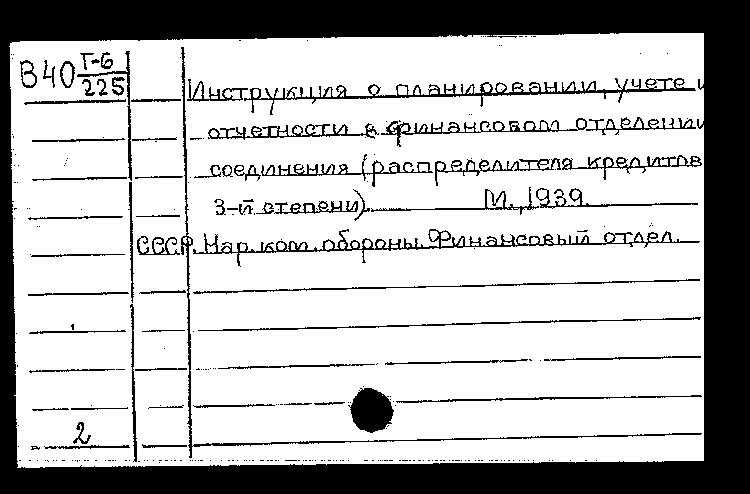 В 40 Г-6/225
Инструкция о планировании, учете и
отчетности в финансовом отделении
соединения (распределителя кредитов
3-й степени). М., 1939.
СССР. Нар. ком. обороны. Финансовый отдел.
2